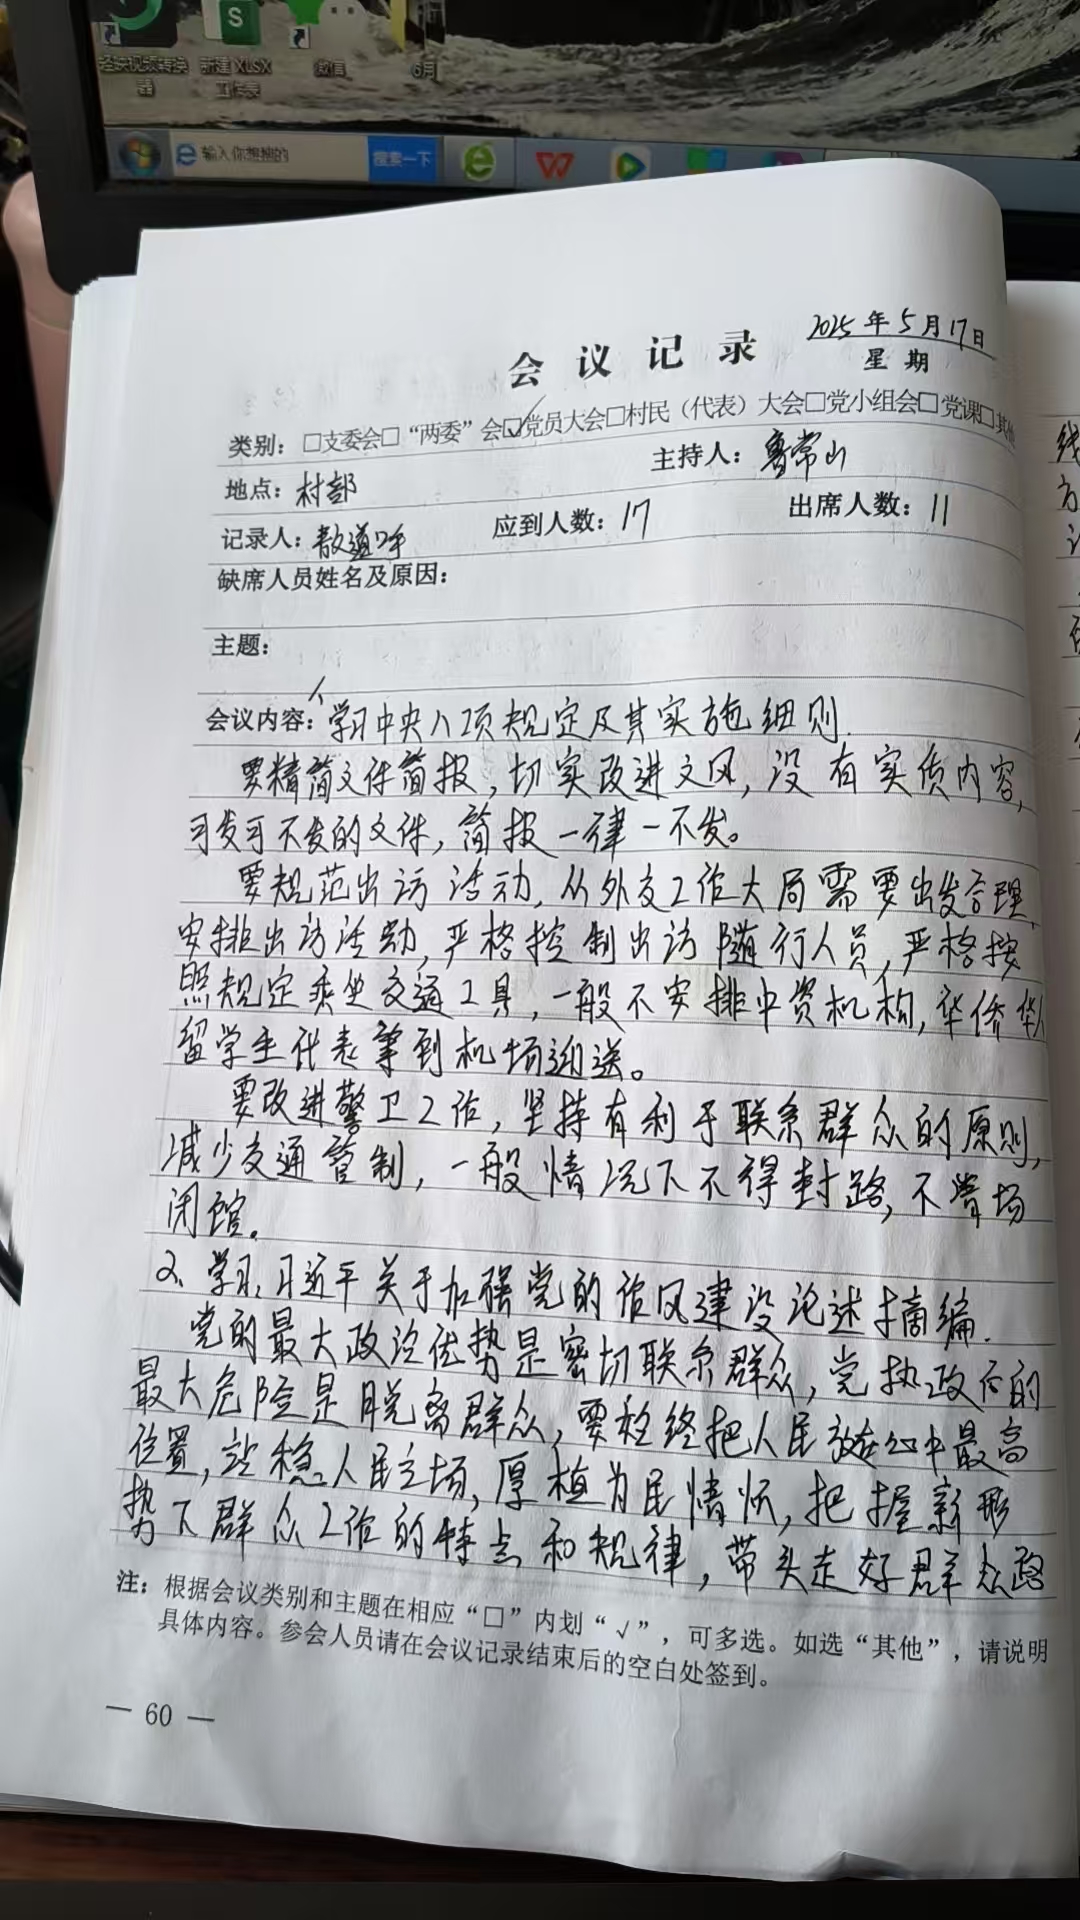 新建 XLSX
工作表
微信
6月
输入你想搜的
搜索一下
2025年5月17日
会议记录
星期
类别：□支委会□“两委”会☑党员大会□村民（代表）大会□党小组会□党课□其他
地点：村部
主持人：鲁常山
记录人：
应到人数：17
出席人数：11
缺席人员姓名及原因：
主题：
会议内容：1、学习中央八项规定及其实施细则.
要精简文件简报，切实改进文风，没有实质内容，
可发可不发的文件，简报一律一不发。
要规范出访活动，从外交工作大局需要出发合理
安排出访活动，严格控制出访随行人员，严格按
照规定乘坐交通工具，一般不安排中资机构，华侨华人
留学生代表等到机场迎送。
要改进警卫工作，坚持有利于联系群众的原则，
减少交通管制，一般情况下不得封路，不清场
闭馆。
2、学习，习近平关于加强党的作风建设论述摘编.
党的最大政治优势是密切联系群众，党执政后的
最大危险是脱离群众，要始终把人民放在心中最高
位置，站稳人民立场，厚植为民情怀，把握新形
势下群众工作的特点和规律，带头走好群众路
注：根据会议类别和主题在相应“□”内划“√”，可多选。如选“其他”，请说明
具体内容。参会人员请在会议记录结束后的空白处签到。
— 60 —